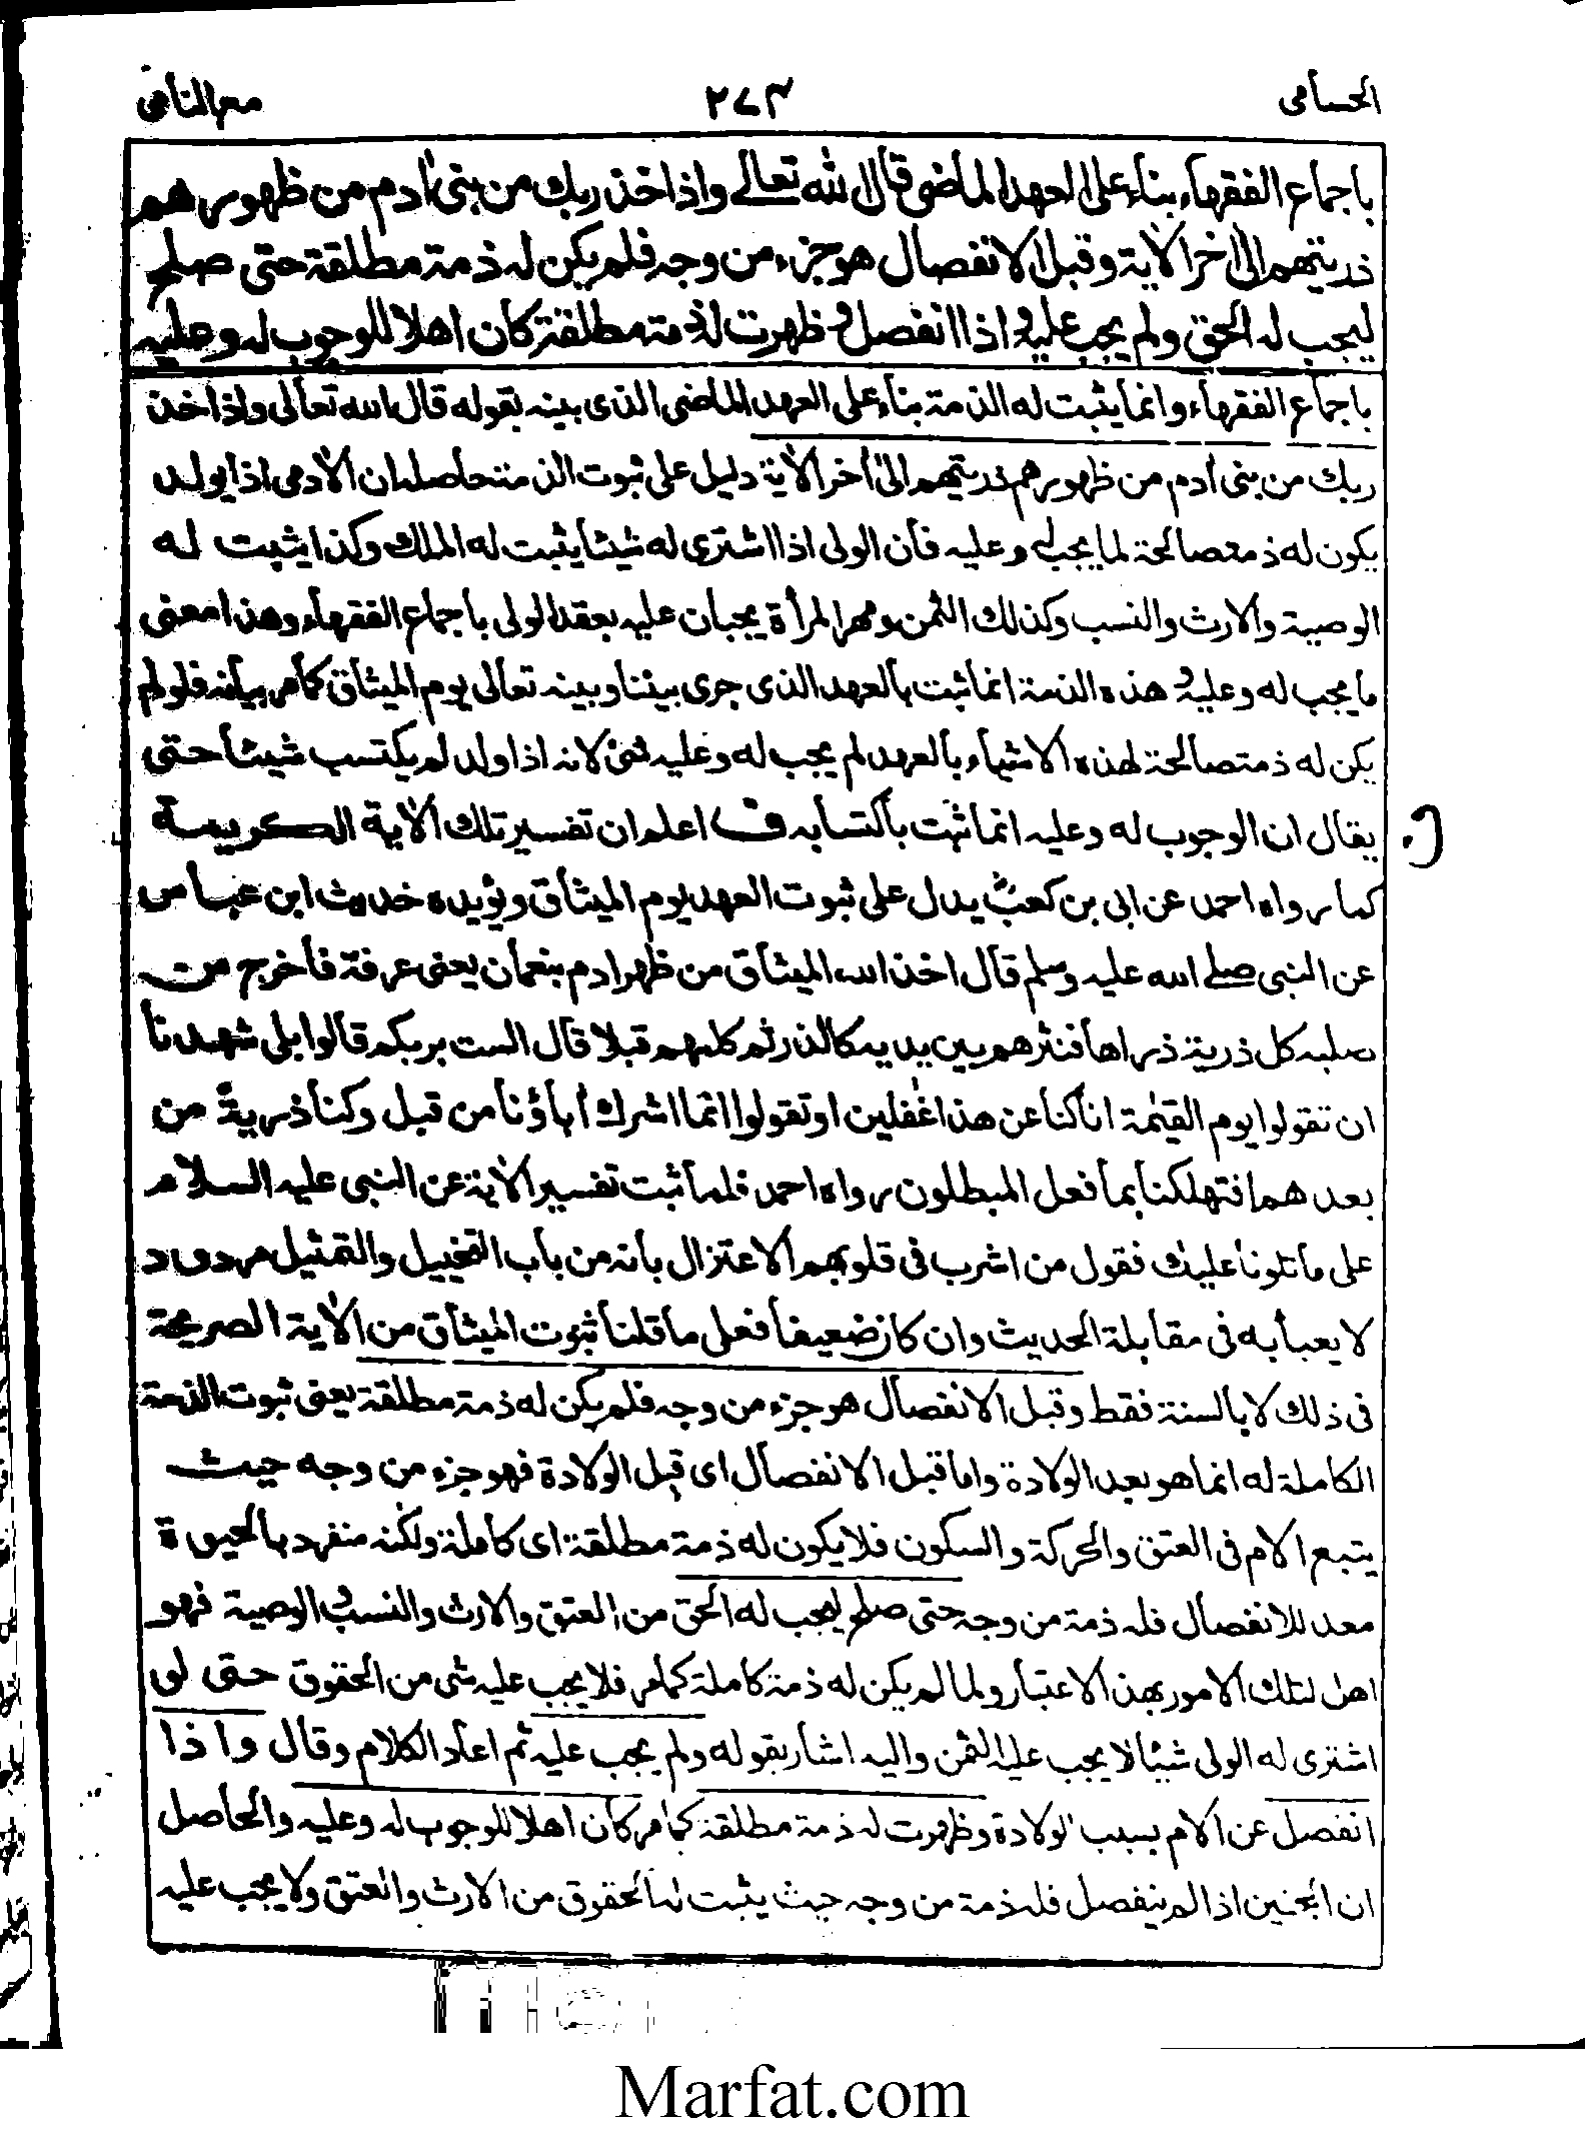 الحسامی ۲۷۴ مع النامی
باجماع الفقهاء بناء علی العهد الماضی قال الله تعالے واذ اخذ ربك من بنی اٰدم من ظهورهم
ذريتهم الیٰ اخر الاٰیة وقبل الانفصال هو جزء من وجه فلم یکن له ذمة مطلقة حتی صلح
لیجب له الحق ولم یجب علیه و اذا انفصل و ظهرت له ذمة مطلقة کان اهلا للوجوب له وعلیه
باجماع الفقهاء وانما یثبت له الذمة بناء علی العهد الماضی الذی بینه بقوله قال الله تعالی واذ اخذ
ربك من بنی اٰدم من ظهورهم ذريتهم الیٰ اٰخر الاٰیة دلیل علی ثبوت الذمة حاصله ان الاٰدمی اذا یولد
یکون له ذمة صالحة لما یجب له وعلیه فان الولی اذا اشتری له شیئا یثبت له الملك وکذا یثبت له
الوصیة والارث والنسب وکذلك الثمن ومهر المرأة یجبان علیه بعقد الولی باجماع الفقهاء وهذا معنی
ما یجب له وعلیه و هذه الذمة انما ثبت بالعهد الذی جری بیننا وبینه تعالی یوم المیثاق کما مر بیانه فلو لم
یکن له ذمة صالحة لهذه الاشیاء بالعهد لم یجب له وعلیه شئ لانه اذا ولد لم یکتسب شیئا حتی
یقال ان الوجوب له وعلیه انما ثبت باکتسابه ف اعلم ان تفسیر تلك الاٰیة الکریمة
کما رواه احمد عن ابی بن کعبؓ یدل علی ثبوت العهد یوم المیثاق ویؤیده حدیث ابن عباس
عن النبی صلے الله علیه وسلم قال اخذ الله المیثاق من ظهر ادم بنعمان یعنی عرفة فاخرج من
صلبه کل ذریة ذراها فنثرهم بین یدیه کالذر ثم کلمهم قبلا قال الست بربکم قالوا بلی شهدنا
ان تقولوا یوم القیٰمة انا کنا عن هذا غٰفلین او تقولوا انما اشرك اٰباؤنا من قبل وکنا ذریة من
بعدهم افتهلکنا بما فعل المبطلون رواه احمد فلما ثبت تفسیر الاٰیة عن النبی علیه السلام
علی ما تلونا علیك فقول من اشرب فی قلوبهم الاعتزال بانه من باب التخییل والتمثیل مردود
لا یعبأ به فی مقابلة الحدیث وان کان ضعیفا فعلی ما قلنا ثبوت المیثاق من الاٰیة الصریحة
فی ذلك لا بالسنة فقط وقبل الانفصال هو جزء من وجه فلم یکن له ذمة مطلقة یعنی ثبوت الذمة
الکاملة له انما هو بعد الولادة واما قبل الانفصال ای قبل الولادة فهو جزء من وجه حیث
یتبع الام فی العتق والحرکة والسکون فلا یکون له ذمة مطلقة ای کاملة ولکنه منفرد بالحیوة
معد للانفصال فله ذمة من وجه حتی صلح لیجب له الحق من العتق والارث والنسب و الوصیة فهو
اهل لتلك الامور بهذ الاعتبار ولما لم یکن له ذمة کاملة کما مر فلا یجب علیه شی من الحقوق حتی لو
اشتری له الولی شیئا لا یجب علیه الثمن والیه اشار بقوله ولم یجب علیه ثم اعاد الکلام وقال واذا
انفصل عن الام بسبب الولادة وظهرت له ذمة مطلقة کما مر کان اهلا للوجوب له وعلیه والحاصل
ان الجنین اذا لم ینفصل فله ذمة من وجه حیث یثبت له الحقوق من الارث والعتق ولا یجب علیه
Marfat.com